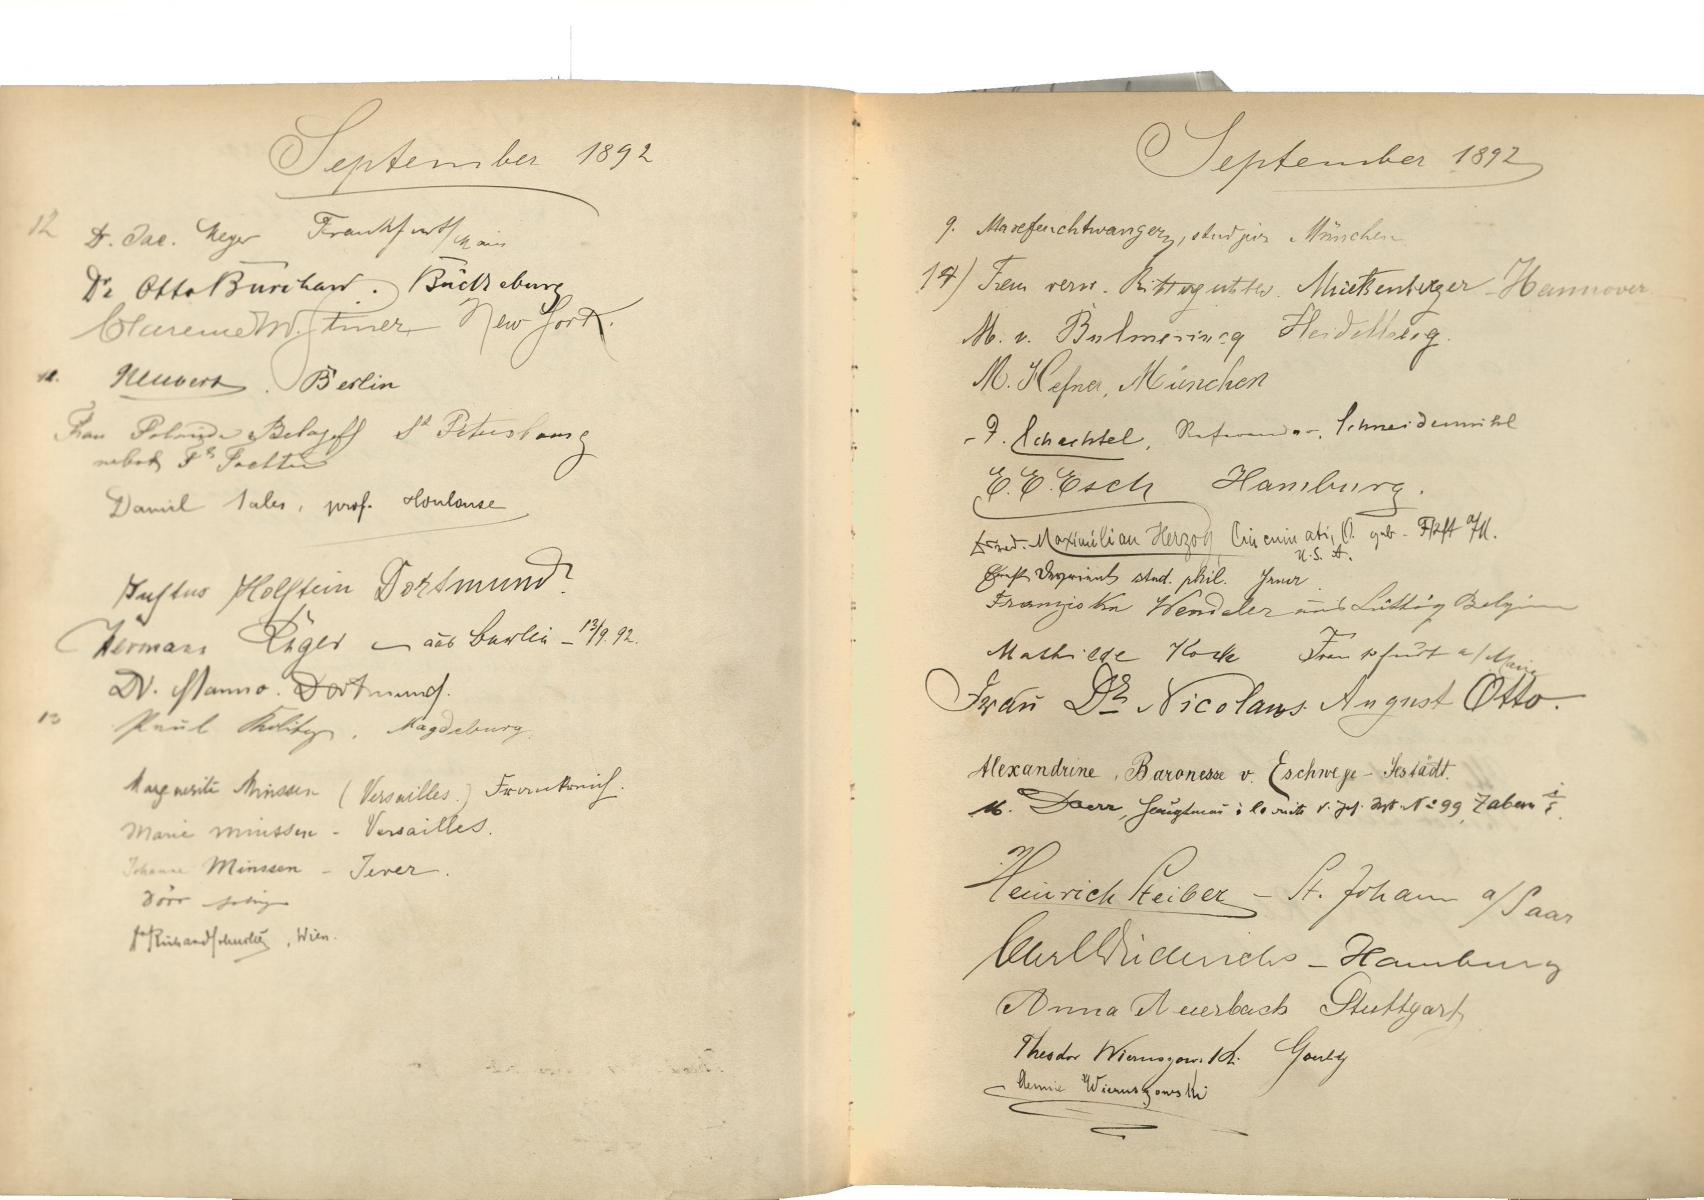 September 1892
12 Dr. Jac. Meyer Frankfurt/Main
Dr Otto Burchard. Bückeburg
Clarence W. New York.
12. Berlin
Frau St Petersburg
nebst Tochter
Daniel prof. Toulouse
Justus Holstein Dortmund
Hermann Jäger aus Berlin - 13/9. 92.
Dr. Manno. Dortmund.
13 Paul Magdeburg
Marguerite Minssen (Versailles.) Frankreich.
Marie Minssen - Versailles.
Johanne Minssen - Jever.
Dörr
Dr Richard Schuster, Wien.
September 1892
9. Max Feuchtwanger, stud jur München
14) Frau verw. Rittergutsbes. Hannover
M. v. Bulmerincq Heidelberg.
M. Hefner, München
- F. Schachtel, Referendar, Schneidemühl
E. E. Esch Hamburg.
Dr med. Maximilian Herzog, Cincinnati, O. geb. Fkft a/M.
U. S. A.
Ernst Devrient stud. phil. Jena
Franziska Wendeler aus Lüttig Belgien
Mathilde Koch Frankfurt a/Main
Frau Dr. Nicolaus August Otto.
Alexandrine, Baronesse v. Eschwege - Jestädt.
M. Doerr, Hauptmann No 99, Zabern i/E.
Heinrich Steiber - St. Johann a/Saar
Carl Diederichs - Hamburg
Anna Auerbach Stuttgart
Theodor Wieruszowski
Aennie Wieruszowski